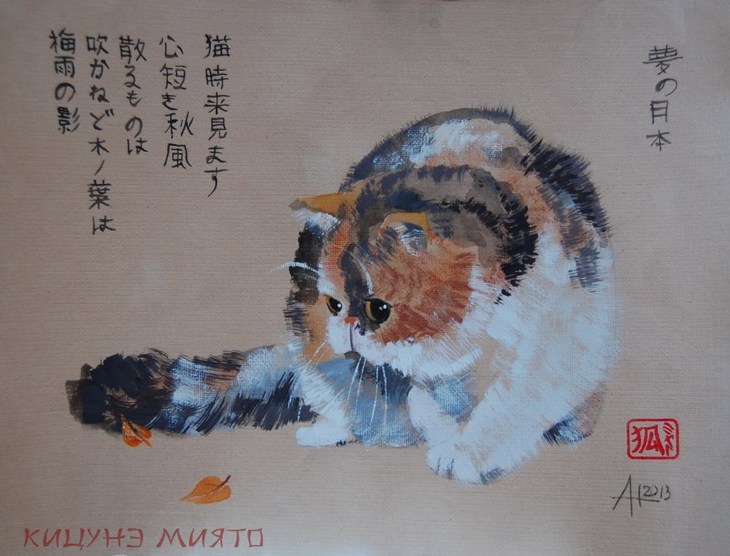 夢の月本
猫時来見ます
心短き秋風
散るものは
吹かねど木ノ葉は
梅雨の影
狐
2013
КИЦУНЭ МИЯТО